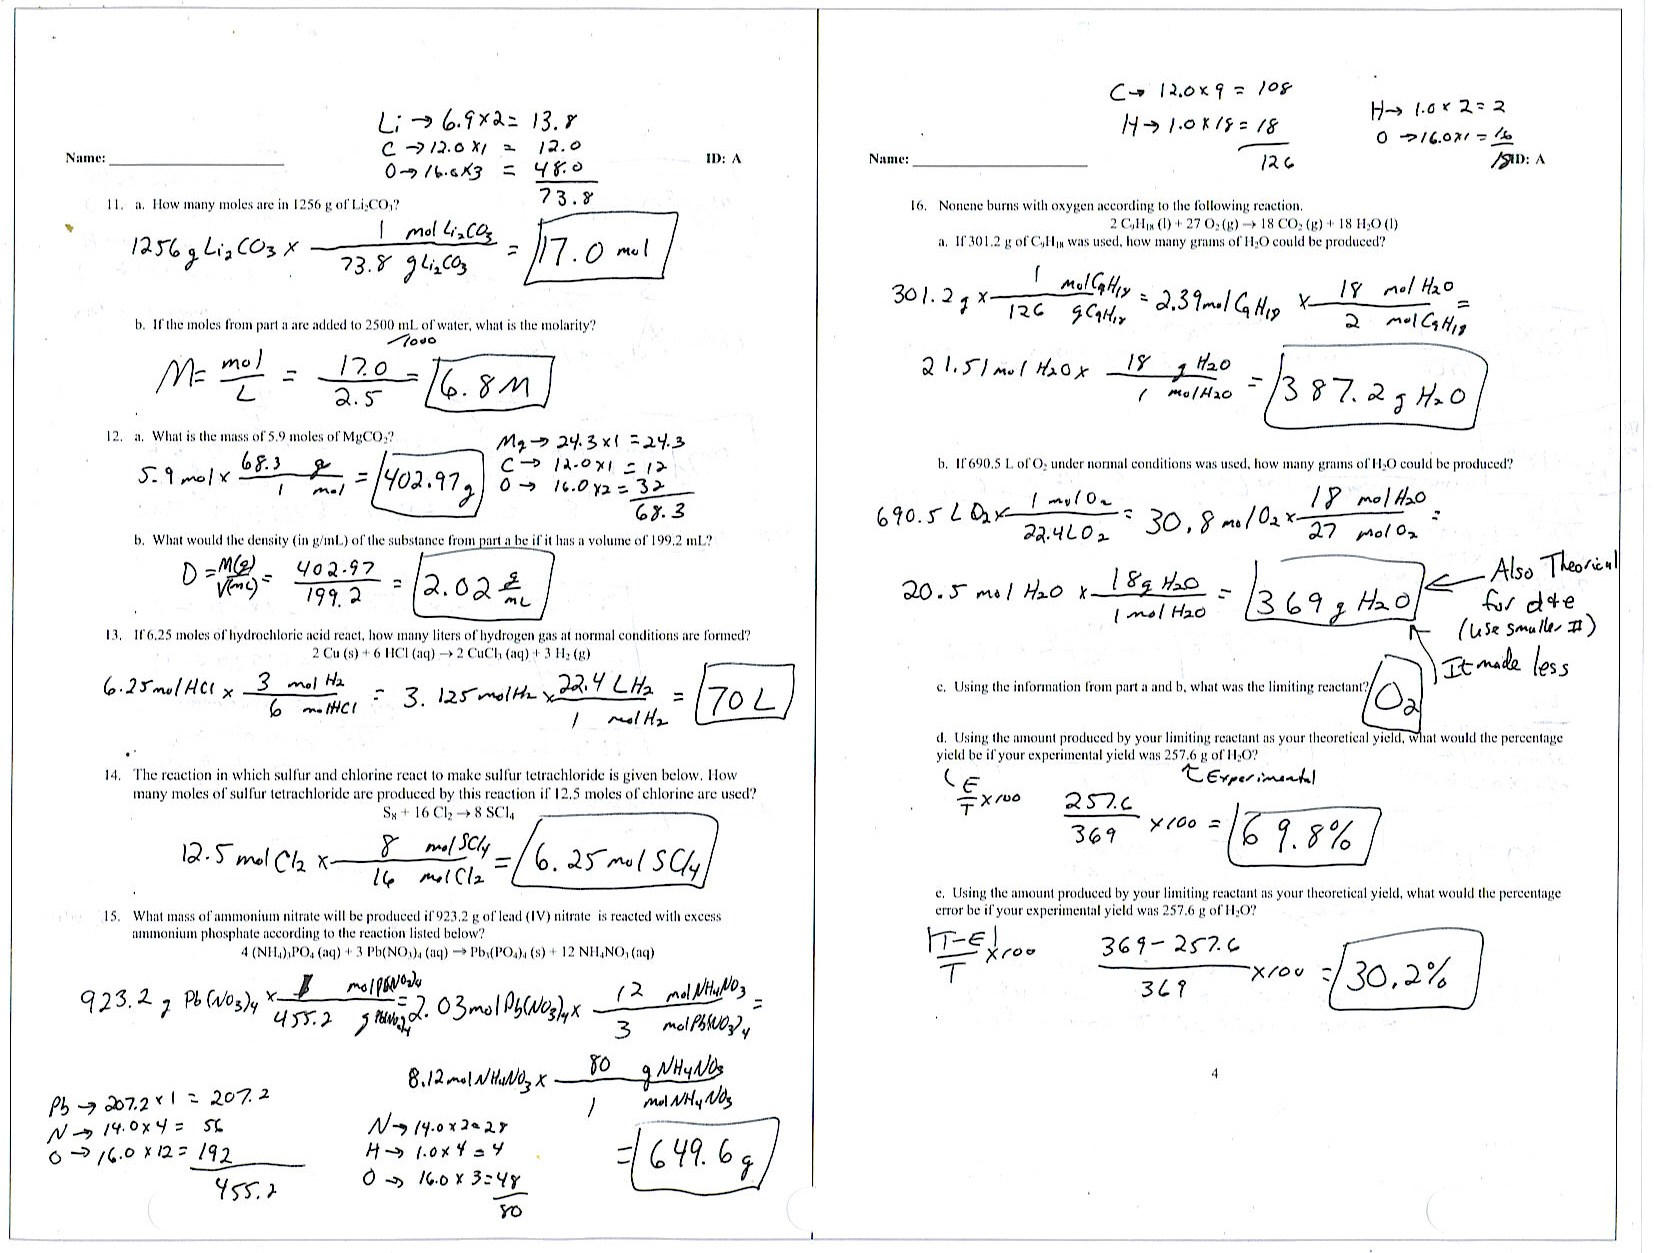 Li → 6.9×2= 13.8
C → 12.0 ×1 = 12.0
O→ 16.0×3 = 48.0
73.8
Name: ID: A
11. a. How many moles are in 1256 g of Li₂CO₃?
1256 g Li₂CO₃ × 1 mol Li₂CO₃ / 73.8 g Li₂CO₃ = 17.0 mol
b. If the moles from part a are added to 2500 mL of water, what is the molarity?
/1000
M= mol / L = 17.0 / 2.5 = 6.8 M
12. a. What is the mass of 5.9 moles of MgCO₂?
Mg → 24.3×1 =24.3
C → 12.0×1 = 12
O → 16.0×2 = 32
68.3
5.9 mol × 68.3 g / 1 mol = 402.97 g
b. What would the density (in g/mL) of the substance from part a be if it has a volume of 199.2 mL?
D = M(g) / V(mL) = 402.97 / 199.2 = 2.02 g / mL
13. If 6.25 moles of hydrochloric acid react, how many liters of hydrogen gas at normal conditions are formed?
2 Cu (s) + 6 HCl (aq) → 2 CuCl₃ (aq) + 3 H₂ (g)
6.25 mol HCl × 3 mol H₂ / 6 mol HCl = 3.125 mol H₂ × 22.4 L H₂ / 1 mol H₂ = 70 L
14. The reaction in which sulfur and chlorine react to make sulfur tetrachloride is given below. How
many moles of sulfur tetrachloride are produced by this reaction if 12.5 moles of chlorine are used?
S₈ + 16 Cl₂ → 8 SCl₄
12.5 mol Cl₂ × 8 mol SCl₄ / 16 mol Cl₂ = 6.25 mol SCl₄
15. What mass of ammonium nitrate will be produced if 923.2 g of lead (IV) nitrate is reacted with excess
ammonium phosphate according to the reaction listed below?
4 (NH₄)₃PO₄ (aq) + 3 Pb(NO₃)₄ (aq) → Pb₃(PO₄)₄ (s) + 12 NH₄NO₃ (aq)
923.2 g Pb(NO₃)₄ × 1 mol Pb(NO₃)₄ / 455.2 g Pb(NO₃)₄ = 2.03 mol Pb(NO₃)₄ × 12 mol NH₄NO₃ / 3 mol Pb(NO₃)₄ =
8.12 mol NH₄NO₃ × 80 g NH₄NO₃ / 1 mol NH₄NO₃
= 649.6 g
Pb → 207.2×1 = 207.2
N → 14.0×4 = 56
O → 16.0×12= 192
455.2
N → 14.0×2=28
H → 1.0×4 =4
O → 16.0×3=48
80
C → 12.0×9 = 108
H → 1.0×18= 18
126
H→ 1.0×2=2
O →16.0×1 = 16
18
Name: ID: A
16. Nonene burns with oxygen according to the following reaction.
2 C₉H₁₈ (l) + 27 O₂ (g) → 18 CO₂ (g) + 18 H₂O (l)
a. If 301.2 g of C₉H₁₈ was used, how many grams of H₂O could be produced?
301.2 g × 1 mol C₉H₁₈ / 126 g C₉H₁₈ = 2.39 mol C₉H₁₈ × 18 mol H₂O / 2 mol C₉H₁₈ =
21.51 mol H₂O × 18 g H₂O / 1 mol H₂O = 387.2 g H₂O
b. If 690.5 L of O₂ under normal conditions was used, how many grams of H₂O could be produced?
690.5 L O₂ × 1 mol O₂ / 22.4 L O₂ = 30.8 mol O₂ × 18 mol H₂O / 27 mol O₂ =
20.5 mol H₂O × 18 g H₂O / 1 mol H₂O = 369 g H₂O
← Also Theorical
for d+e
(use smaller #)
It made less
c. Using the information from part a and b, what was the limiting reactant? O₂
d. Using the amount produced by your limiting reactant as your theoretical yield, what would the percentage
yield be if your experimental yield was 257.6 g of H₂O?
Experimental
E / T ×100 257.6 / 369 ×100 = 69.8%
e. Using the amount produced by your limiting reactant as your theoretical yield, what would the percentage
error be if your experimental yield was 257.6 g of H₂O?
|T-E| / T ×100 369-257.6 / 369 ×100 = 30.2%
4